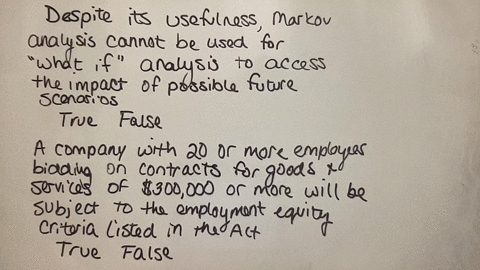 Despite its usefulness, Markov
analysis cannot be used for
"what if" analysis to access
the impact of possible future
scenarios
True False
A company with 20 or more employees
bidding on contracts for goods &
services of $300,000 or more will be
subject to the employment equity
criteria listed in the Act
True False